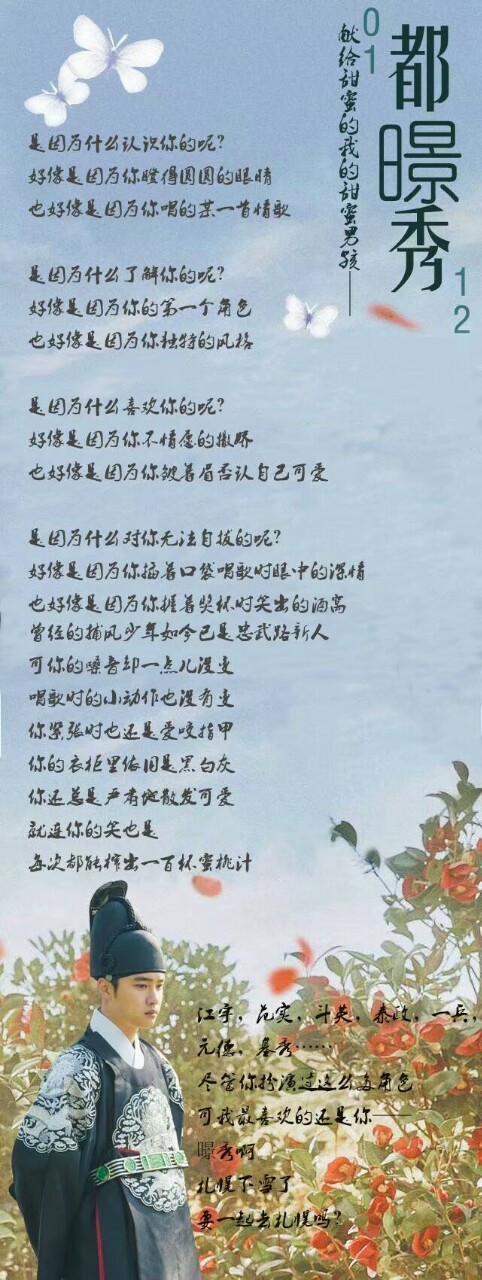 都暻秀
0112
献给甜蜜的我的甜蜜男孩——
是因为什么认识你的呢?
好像是因为你瞪得圆圆的眼睛
也好像是因为你唱的某一首情歌
是因为什么了解你的呢?
好像是因为你的第一个角色
也好像是因为你独特的风格
是因为什么喜欢你的呢?
好像是因为你不情愿的撒娇
也好像是因为你皱着眉否认自己可爱
是因为什么对你无法自拔的呢?
好像是因为你插着口袋唱歌时眼中的深情
也好像是因为你握着奖杯时笑出的酒窝
曾经的捕风少年如今已是忠武路新人
可你的嗓音却一点儿没变
唱歌时的小动作也没有变
你紧张时也还是爱咬指甲
你的衣柜里依旧是黑白灰
你还总是严肃地散发可爱
就连你的笑也是
每次都能榨出一百杯蜜桃汁
江宇，范实，斗英，泰政，一兵，
元德，基秀……
尽管你扮演过这么多角色
可我最喜欢的还是你——
暻秀啊
札幌下雪了
要一起去札幌吗?